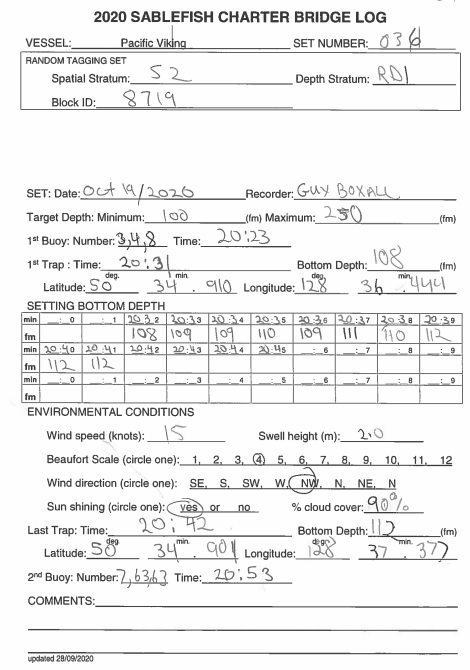 2020 SABLEFISH CHARTER BRIDGE LOG
VESSEL: Pacific Viking SET NUMBER: 036
RANDOM TAGGING SET
Spatial Stratum: S2 Depth Stratum: RD1
Block ID: 8719
SET: Date: Oct 19/2020 Recorder: GUY BOXALL
Target Depth: Minimum: 100 (fm) Maximum: 250 (fm)
1st Buoy: Number: 3,4,8 Time: 20:23
1st Trap : Time: 20:31 Bottom Depth: 108
Latitude: 50 deg. 34 min. .910 Longitude: 128 deg. 36 min. .444
SETTING BOTTOM DEPTH
min __:__0 __:__1 20:32 20:33 20:34 20:35 20:36 20:37 20:38 20:39
fm 108 109 109 110 109 111 110 112
min 20:40 20:41 20:42 20:43 20:44 20:45 __:__6 __:__7 __:__8 __:__9
fm 112 112
min __:__0 __:__1 __:__2 __:__3 __:__4 __:__5 __:__6 __:__7 __:__8 __:__9
fm
ENVIRONMENTAL CONDITIONS
Wind speed (knots): 15 Swell height (m): 2.0
Beaufort Scale (circle one): 1, 2, 3, 4, 5, 6, 7, 8, 9, 10, 11, 12
Wind direction (circle one): SE, S, SW, W, NW, N, NE, N
Sun shining (circle one): yes or no % cloud cover: 90%
Last Trap: Time: 20:42 Bottom Depth: 112
Latitude: 50 deg. 34 min. .901 Longitude: 128 deg. 37 min. .377
2nd Buoy: Number: 7,63,63 Time: 20:53
COMMENTS:
updated 28/09/2020